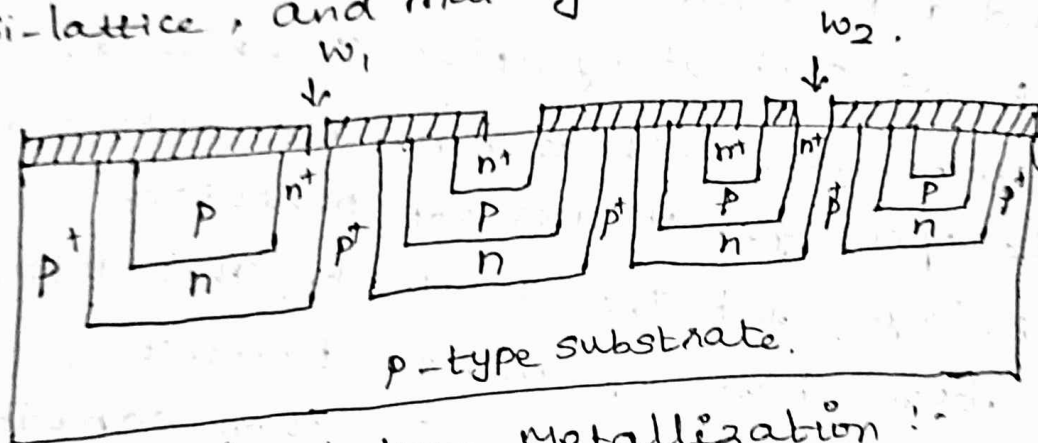 i-lattice, and
W1
W2.
n+
n+
n+
n+
p
p+
p+
p
p+
p
p+
p
p+
n
n
n
n
p-type substrate.
Metallization :-